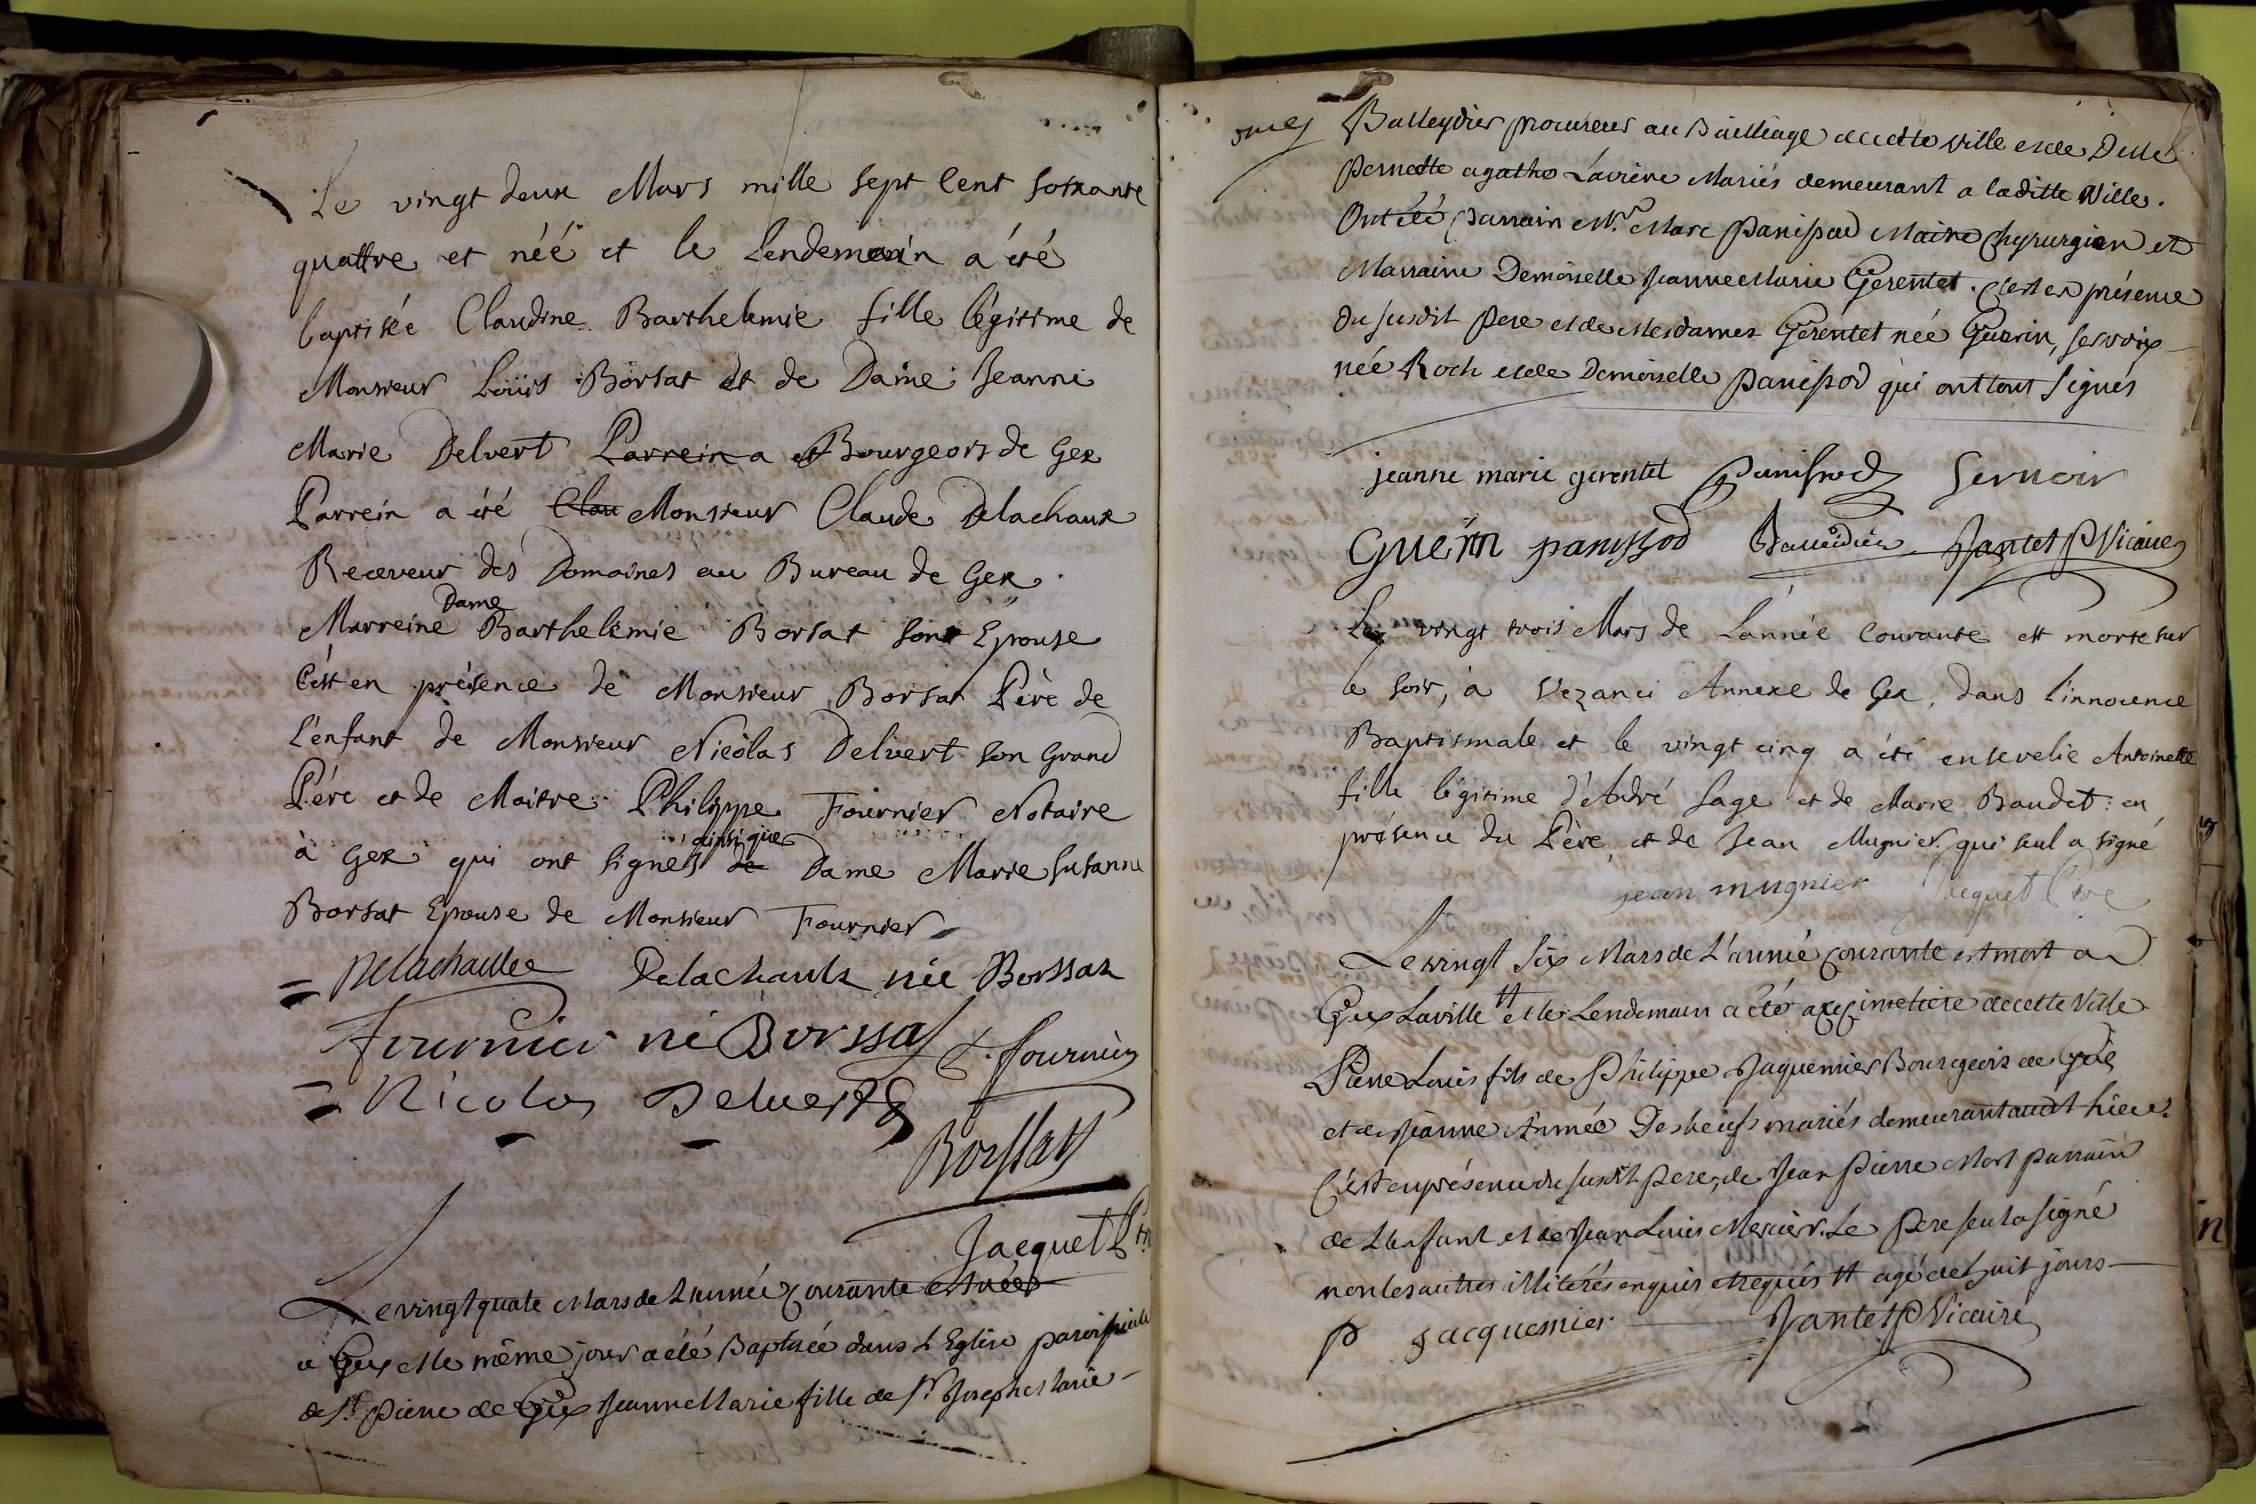 Le vingt deux Mars mille sept Cent soixante
quattre et néé et le Lendemain a été
baptisée Claudine Barthelemie fille légitime de
Monsieur Loüis Borsat et de Dame Jeanne
Marie Delvert Parrein a et Bourgeois de Gex
Parrein a été Clau Monsieur Claude Delachaux
Receveur des Domaines au Bureau de Gex.
Marreine Dame Barthelémie Borsat sont Epouse
C'est en présence de Monsieur Borsat Pére de
L'enfant de Monsieur Nicòlas Delvert son Grand
Pére et de Maitre Philippe Fournier Notaire
à Gex qui ont signés de ainsi que Dame Marie Susanne
Borsat Epouse de Monsieur Fournier
Delachaux Delachaux née Borssat
Fournier né Borssat f. fournier
Nicolas Deluert
Borssat
Jacquet Ptre
Le vingt quate Mars de L'année Courante est née
a Gex et le même jour a été Baptisée dans L'Eglise paroissiale
de St. pierre de Gex Jeanne Marie fille de Sr. Joseph Marie
Balleydier procureur au Bailliage de cette ville et de Dlle
Pernette agathe Lavirere Mariés demeurant a laditte Ville.
Ont été parrain Mr. Marc Panissod Maitre Chyrurgien et
Marraine Demoiselle Jeanne Marie Gerentet. C'est en présence
du susdit Pere et de Mesdames Gerentet née Guerin, Servoix
née Roch et de Demoiselle Panissod qui ont tous signés
jeanne marie gerentet Panissod Servoir
Guérin panissod Balleidier Jantet P Vicaire
Le vingt trois Mars de L'année Courante est morte sur
le soir, à Vezanci Annexe de Gex, dans l'innocence
Baptismale et le vingt cinq a été ensevelie Antoinette
fille légitime d'André Sage et de Marie Baudet: en
présence du Pére, et de Jean Mugnier qui seul a signé
jean mugnier Jacquet Ptre
Le vingt six Mars de L'année Courante est mort a
Gex Laville # et le Lendemain a été au Cimetiere de cette Ville
Pierre Louis fils de Philippe Jaquemier Bourgeois de Gex
et de Jeanne Aimée mariés demeurant audit lieu.
C'est en présence du susdit pere, de Jean Pierre Mort parrain
de L'enfant et de Jean Louis Mercier. Le Pere seul a signé
non les autres illiterés enquis et requis # agé de huit jours
P Jacquemier Jantet P Vicaire